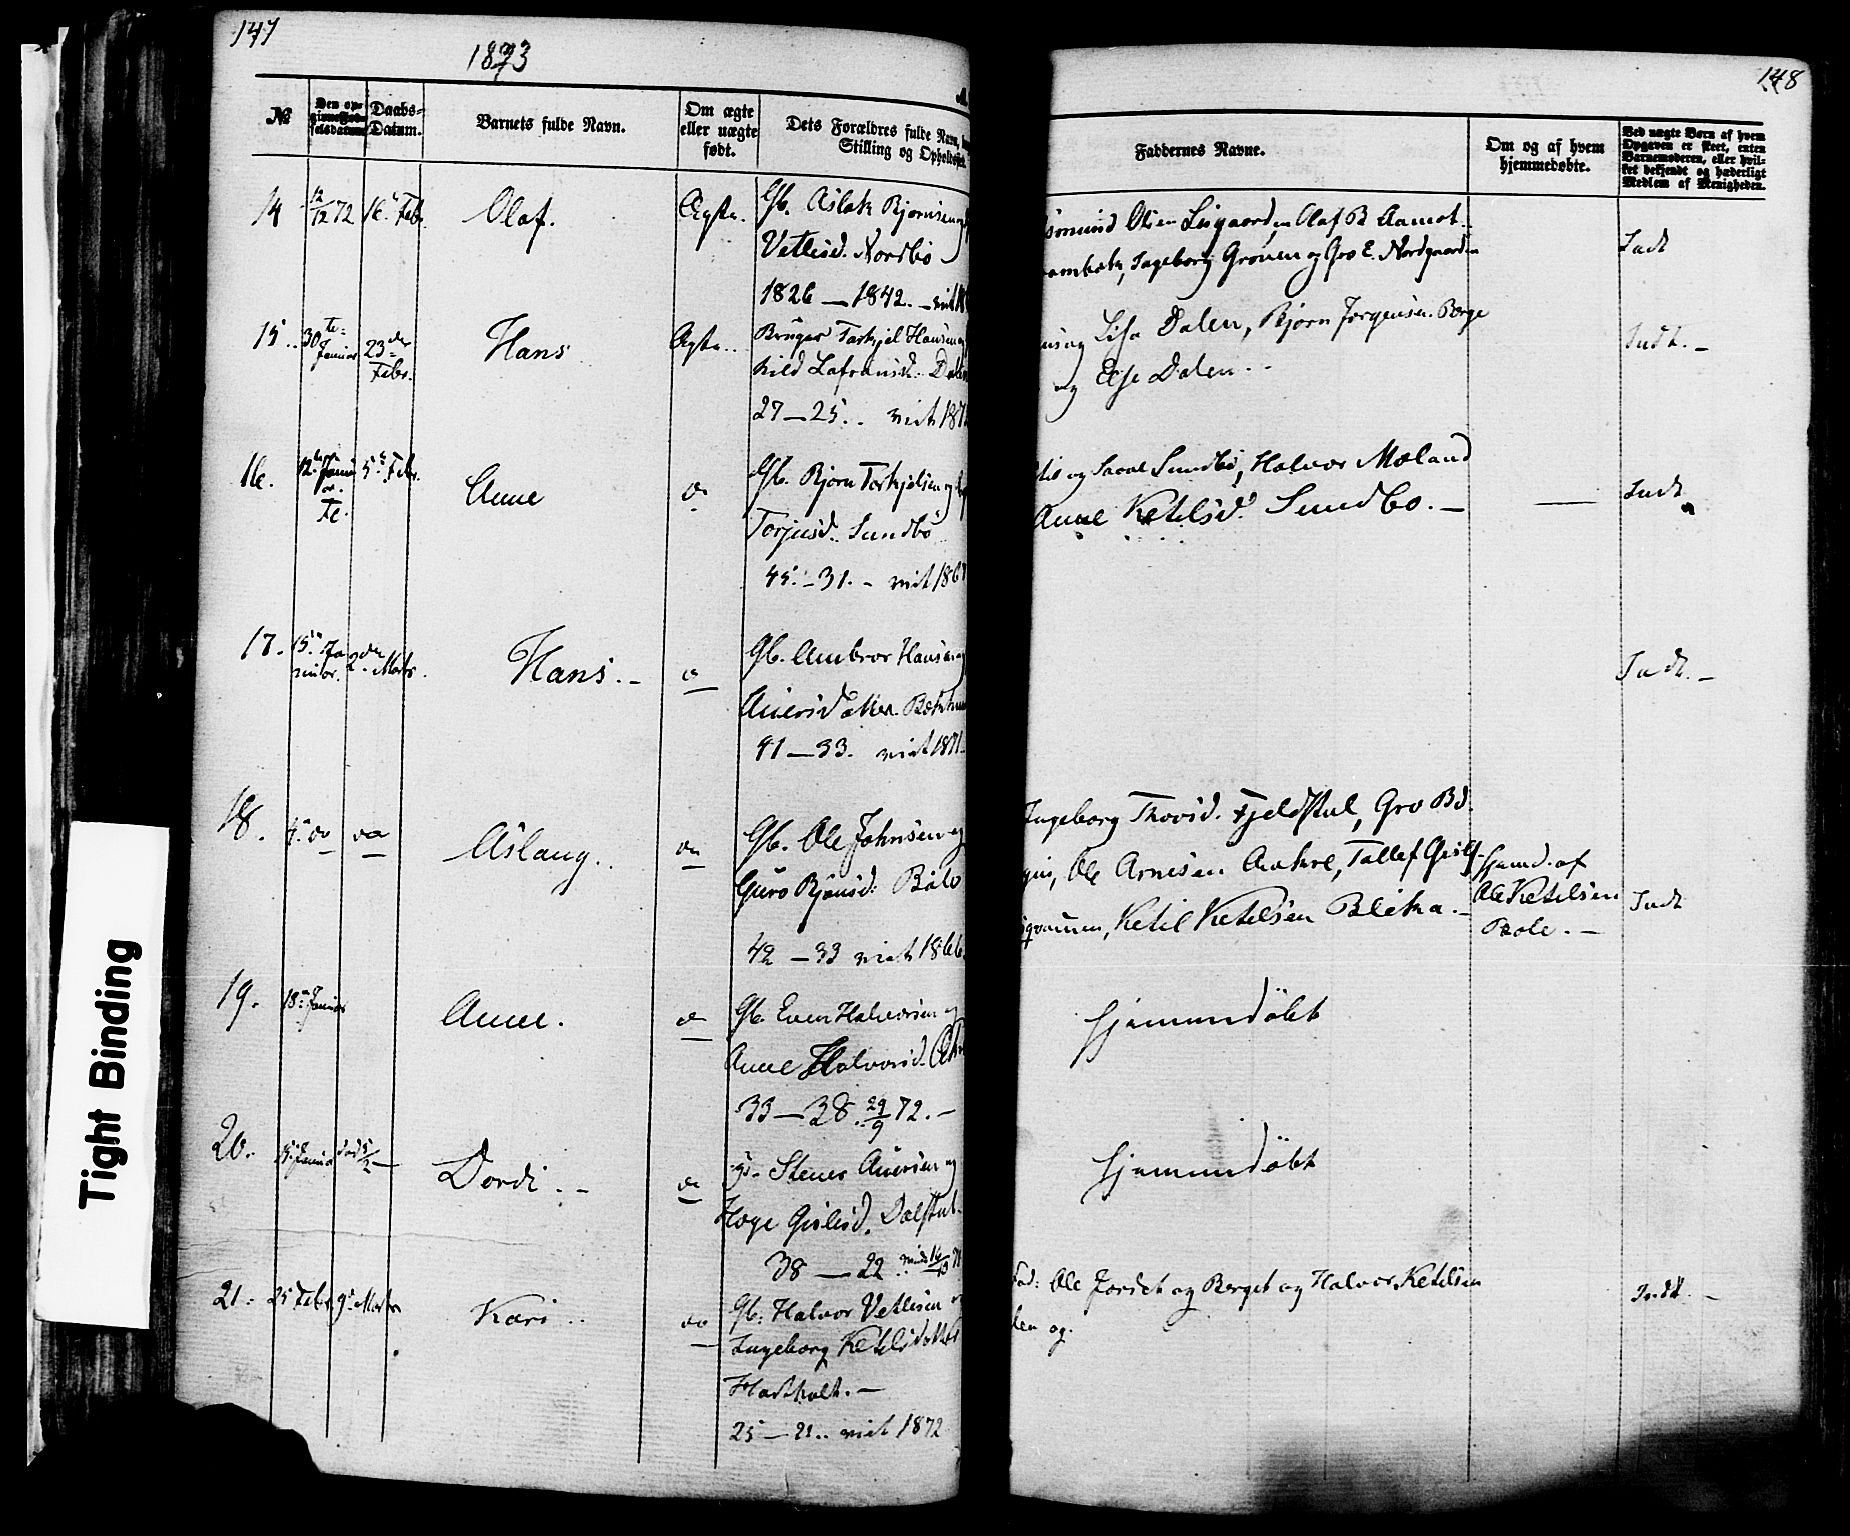 147
1873
№
Den opgivne Fødselsdatum
Daabs-Datum.
Barnets fulde Navn.
Om ægte eller uægte født.
Dets Forældres fulde Navn,
Stilling og Opholds
14
12/12 72
16. Febr.
Olaf.
Ægte.
Gb. Aslak Bjørnsen og
Vetlesd. Nordbø
1826 — 1842. —
15.
30te Januar
23de Febr.
Hans
Ægte.
Bruger Torkjel Hansen og
hild Lafransd. Dalen
27 — 25. . vict 187
16.
12te Januar
5te Febr.
Anne
do
Gb. Bjørn Torkjelsen og
Torjusd. Sundbø
45. — 31. — vict 186
17.
15de Januar.
2den Marts.
Hans. —
do
Gb. Ambror Hansen og
Auversdatter
41 — 33. vict 1871.
18.
do
do
Aslaug.
do
Gb. Ole Johnsen og
Guro Bjønsd: Bølo
42 — 33 vict 1866.
19.
18de Januar
Anne.
do
Gb. Even Halvorsen og
Anne Halvorsd.
33 — 38. 29/9 72. —
20.
15. Januar
død 5/2 —
Dordi. —
do
Stener Auversen og
Hæge Gislesd. Dalstul.
38 — 22
21.
25 Febr.
9de Marts
Kari
do
Gb. Halvor Vetlesen
Ingeborg Ketilsdatter
Hartholt. —
25 — 21. . vict 1872
148
Faddernes Navne.
Om og af hvem hjemmedøbte.
Ved uægte Børn af hvem
Opgaven er skeet, enten
Barnemoderen, eller hvil-
ket bekjendt og hæderligt
Medlem af Menigheden.
Olsen Lisgaarden, Olaf B. Aamot
Ingeborg Grønen og Gro E. Nordgaarden
Indt
og Lisa Dalen, Bjørn Jørgensen Berge
og Else Dalen.
Indt. —
og Saave Sundbø, Halvor Moland
Anne Ketilsd. Sundbø. —
—
Indt
Indt. —
Ingeborg Thovsd. Fjeldstul, Gro Bd.
Ole Arnesen Aakre, Tallef Gisl
Ketil Ketelsen Bleka. —
Hjemd. af
Ole Ketelsen
Bøle. —
Indt
Hjemmedøbt
Hjemmedøbt
Fad: Ole Jordet og Berget og Halvor Ketelsen
len og.
Indt. —
Tight Binding